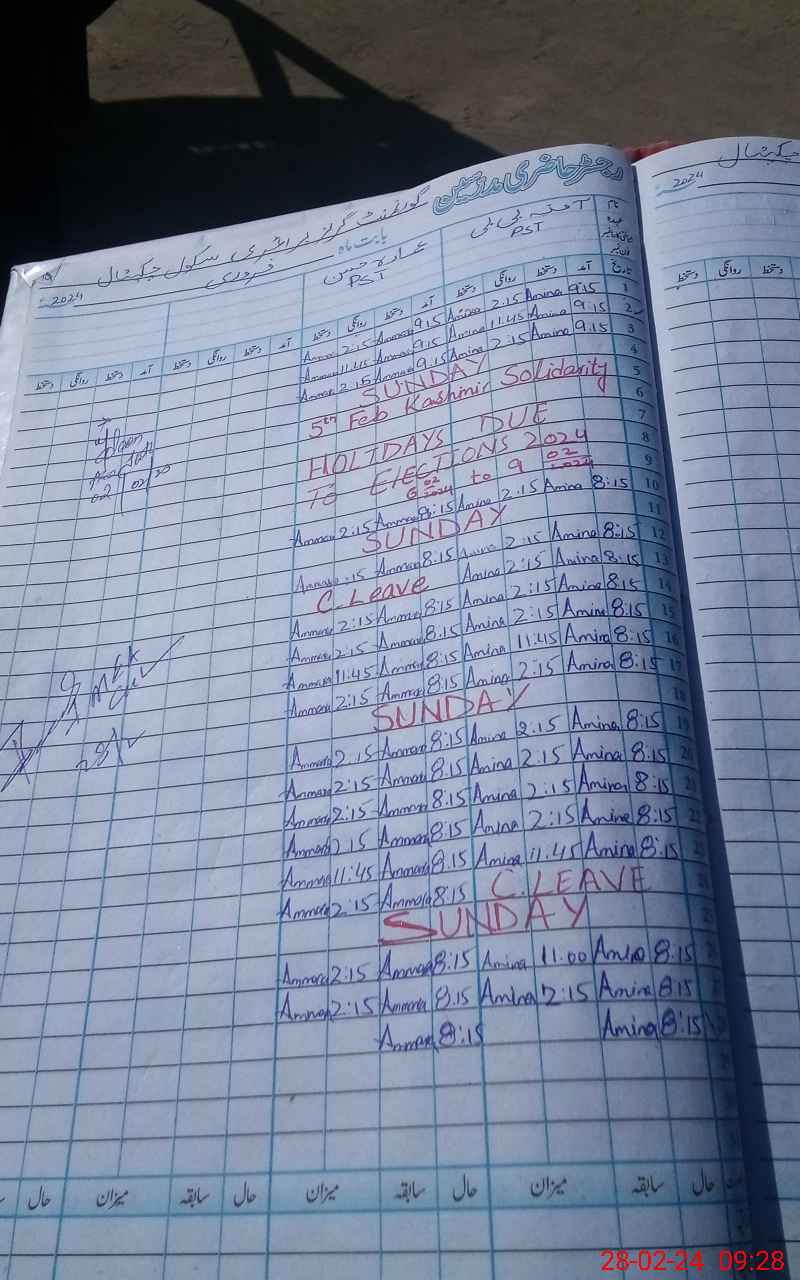 رجسٹر حاضری مدرسین
گورنمنٹ گرلز پرائمری سکول چیکتھال
بابت ماہ فروری 2024
آمنہ بی بی PST
PST
تاریخ آمد دستخط روانگی دستخط آمد دستخط روانگی دستخط آمد دستخط روانگی دستخط آمد دستخط روانگی دستخط
1 9:15 Amina 2:15 Amina 9:15 Ammara 2:15 Ammara
2 9:15 Amina 11:45 Amina 9:15 Ammara 11:45 Ammara
3 9:15 Amina 2:15 Amina 9:15 Ammara 2:15 Ammara
4 SUNDAY
5 5th Feb Kashmir Solidarity
6
7 HOLIDAYS DUE
8 To ElECTIONS 2024
9 6 02 2024 to 9 02 2024
10 8:15 Amina 2:15 Amina 8:15 Ammara 2:15 Ammara
11 SUNDAY
12 8:15 Amina 2:15 Amina 8:15 Ammara :15 Ammara
13 8:15 Amina 2:15 Amina C.Leave
14 8:15 Amina 2:15 Amina 8:15 Ammara 2:15 Ammara
15 8:15 Amina 2:15 Amina 8:15 Ammara 2:15 Ammara
16 8:15 Amina 11:45 Amina 8:15 Ammara 11:45 Ammara
17 8:15 Amina 2:15 Amina 8:15 Ammara 2:15 Ammara
18 SUNDAY
19 8:15 Amina 2:15 Amina 8:15 Ammara 2:15 Ammara
20 8:15 Amina 2:15 Amina 8:15 Ammara 2:15 Ammara
21 8:15 Amina 2:15 Amina 8:15 Ammara 2:15 Ammara
22 8:15 Amina 2:15 Amina 8:15 Ammara 2:15 Ammara
23 8:15 Amina 11:45 Amina 8:15 Ammara 11:45 Ammara
24 C.LEAVE 8:15 Ammara 2:15 Ammara
25 SUNDAY
8:15 Amina 11.00 Amina 8:15 Ammara 2:15 Ammara
8:15 Amina 2:15 Amina 8:15 Ammara 2:15 Ammara
8:15 Amina 8:15 Ammara
حال سابقہ میزان حال سابقہ میزان حال سابقہ میزان حال
چیکتھال
2024
دستخط روانگی دستخط
28-02-24 09:28